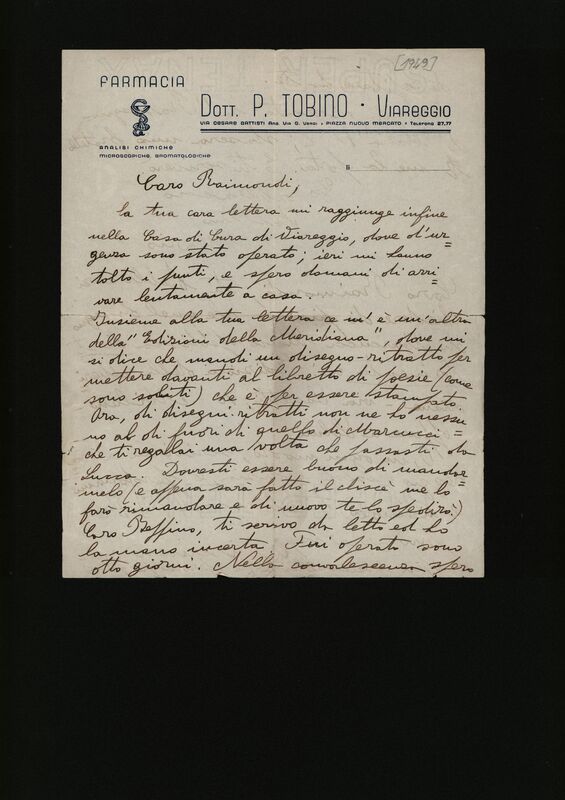 [1949]
FARMACIA
DOTT. P. TOBINO · VIAREGGIO
VIA CESARE BATTISTI Ang. Via G. Verdi · PIAZZA NUOVO MERCATO · Telefono 27.77
ANALISI CHIMICHE
MICROSCOPICHE, BROMATOLOGICHE
li
Caro Raimondi,
la tua cara lettera mi raggiunge infine
nella Casa di Cura di Viareggio, dove d'ur=
genza sono stato operato; ieri mi hanno
tolto i punti, e spero domani di arri=
vare lentamente a casa.
Insieme alla tua lettera ce n'è un'altra
della "Edizioni della Meridiana", dove mi
si dice che mandi un disegno-ritratto per
mettere davanti al libretto di poesie (come
sono soliti) che è per essere stampato.
Ora, di disegni-ritratti non ne ho nessu=
no al di fuori di quello di Marcucci
che ti regalai una volta che passasti da
Lucca. Dovresti essere buono di mandar=
melo (e appena sarà fatto il cliscè me lo
farò rimandare e di nuovo te lo spedirò.)
Caro Beppino, ti scrivo da letto ed ho
la mano incerta. Fui operato sono
otto giorni. Nella convalescenza spero